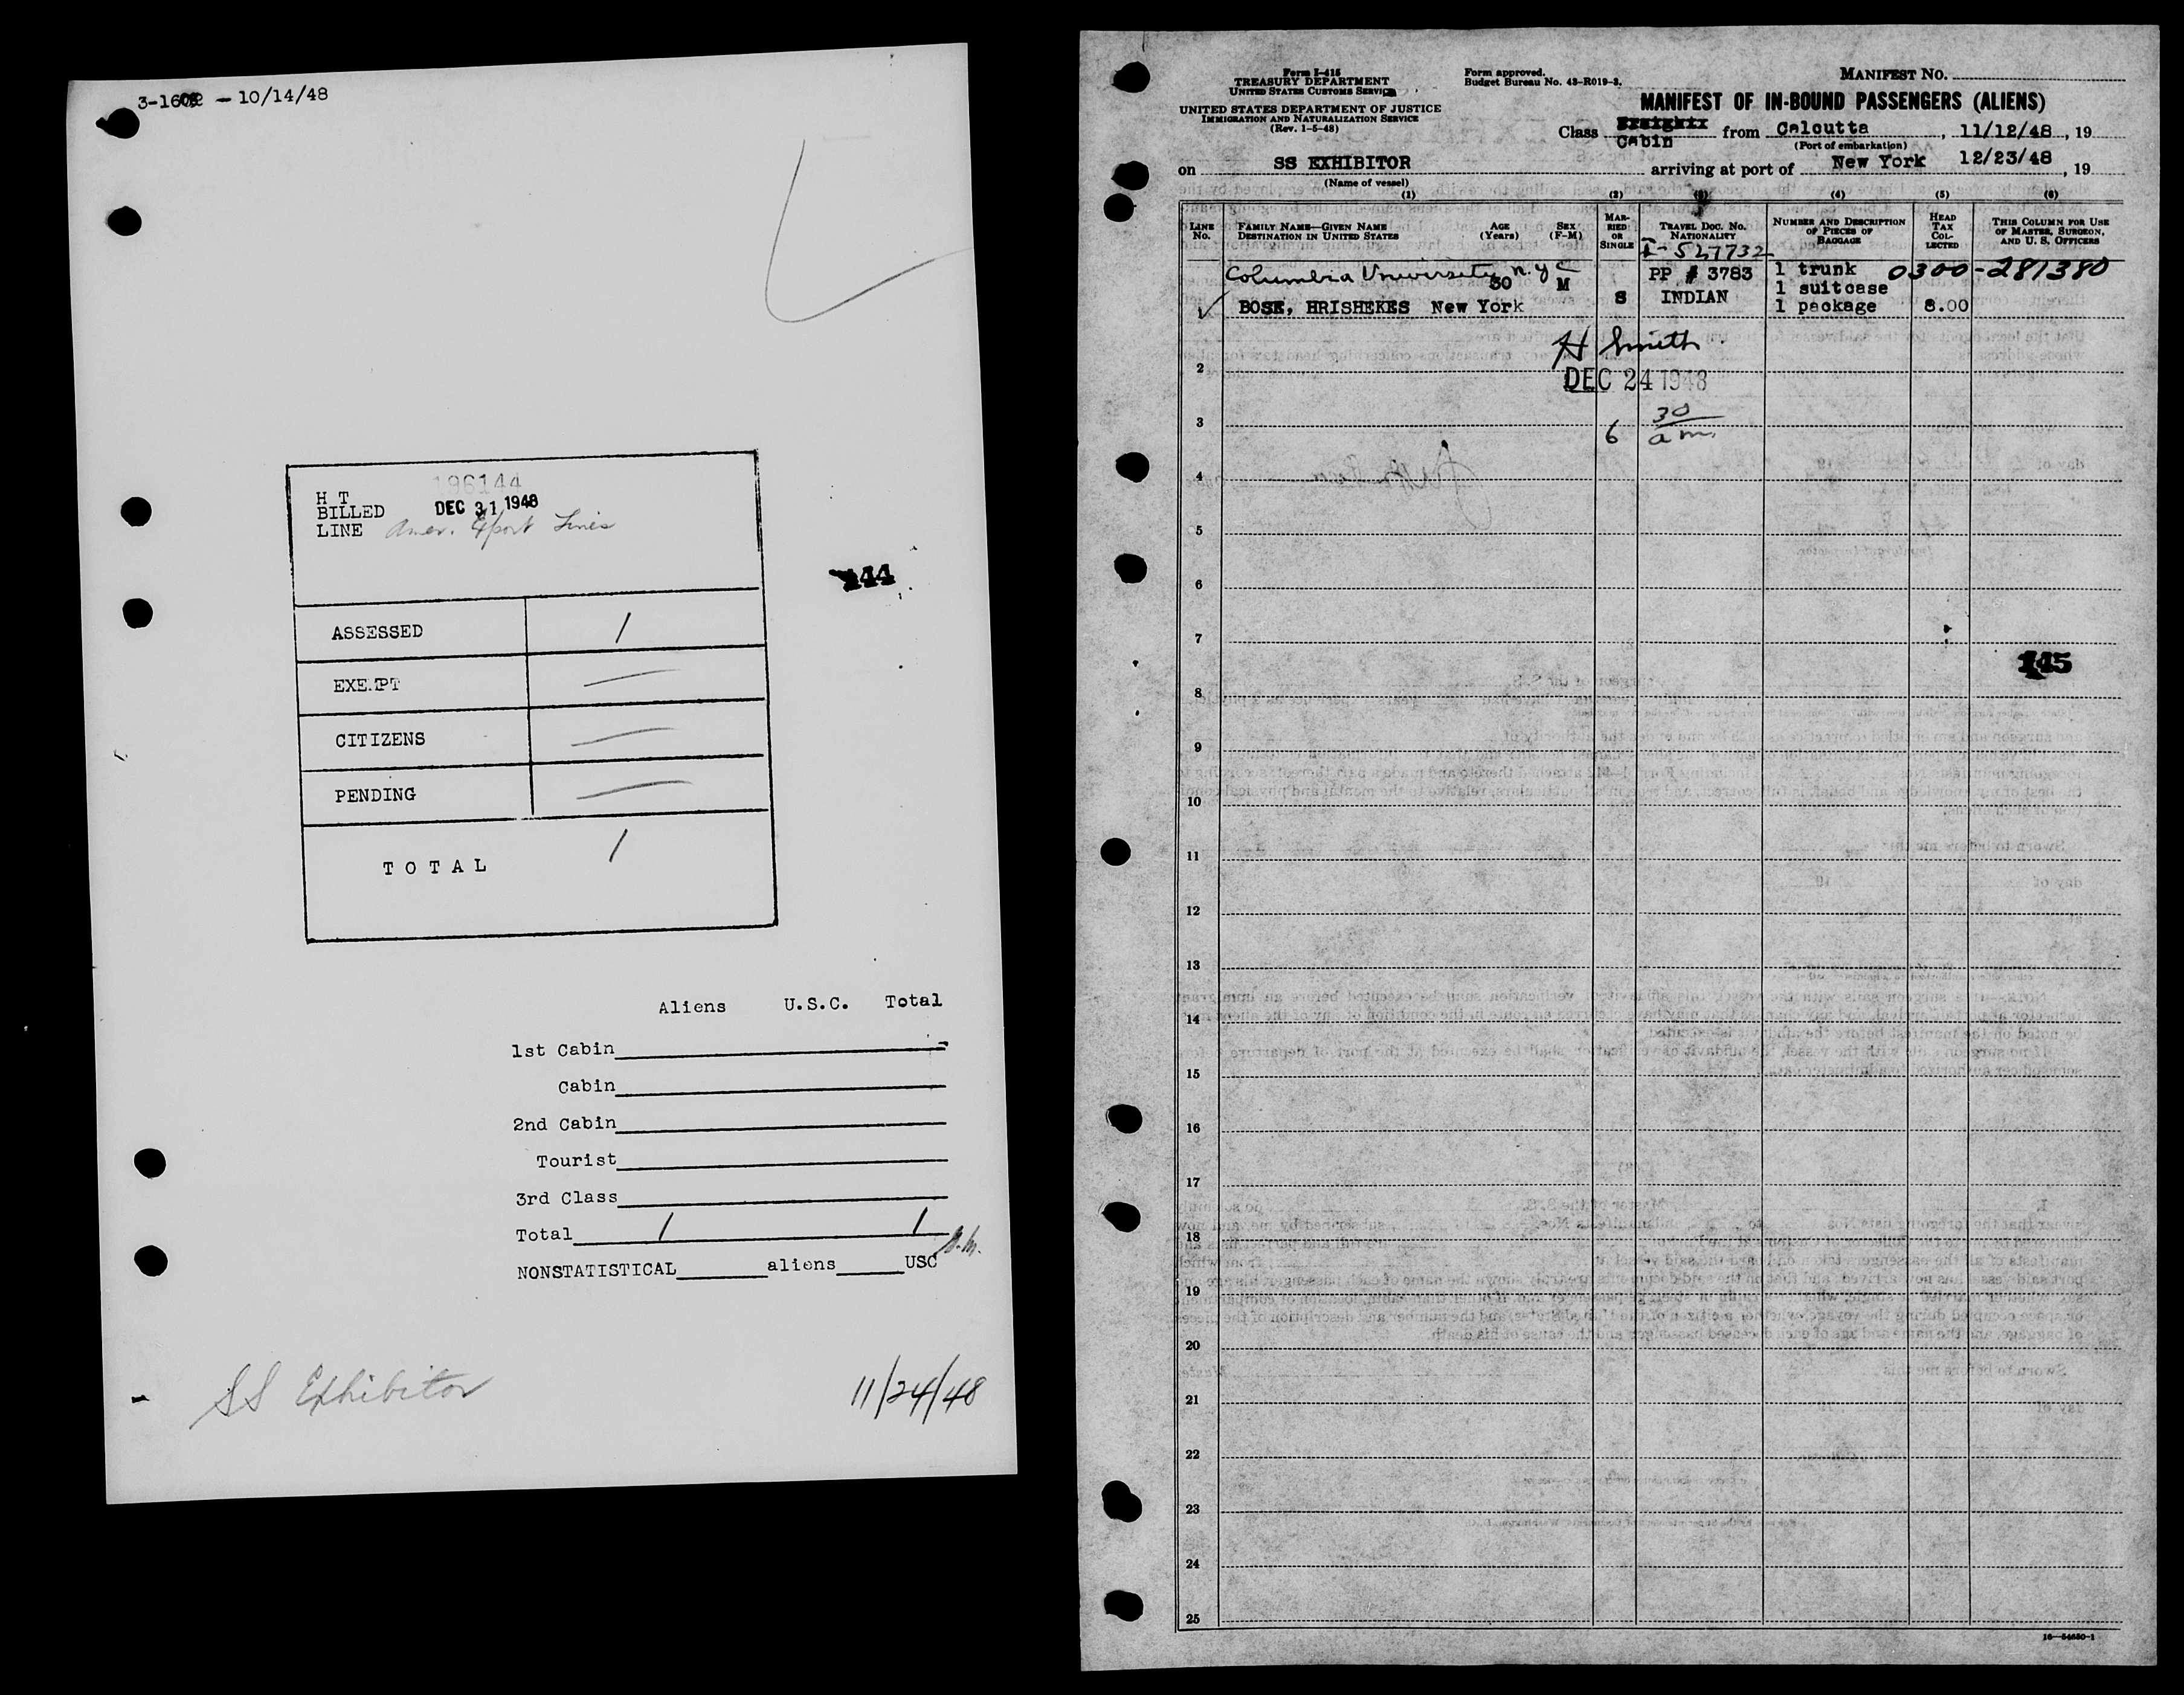 3-1602 - 10/14/48
196144
H T
BILLED DEC 31 1948
LINE Amer. Export Lines
144
ASSESSED 1
EXEMPT —
CITIZENS —
PENDING —
TOTAL 1
Aliens U.S.C. Total
1st Cabin
Cabin
2nd Cabin
Tourist
3rd Class
Total 1 1
NONSTATISTICAL aliens USC
SS Exhibitor 11/24/48
Form I-415
TREASURY DEPARTMENT
UNITED STATES CUSTOMS SERVICE
UNITED STATES DEPARTMENT OF JUSTICE
IMMIGRATION AND NATURALIZATION SERVICE
(Rev. 1-5-48)
Form approved.
Budget Bureau No. 43-R019-3.
MANIFEST NO.
MANIFEST OF IN-BOUND PASSENGERS (ALIENS)
Class Cabin from Calcutta, 11/12/48, 19
(Port of embarkation)
on SS EXHIBITOR arriving at port of New York 12/23/48, 19
(Name of vessel)
(1) (2) (3) (4) (5) (6)
LINE No.
FAMILY NAME—GIVEN NAME
DESTINATION IN UNITED STATES
AGE (Years)
SEX (F-M)
MARRIED OR SINGLE
TRAVEL DOC. No.
NATIONALITY
NUMBER AND DESCRIPTION OF PIECES OF BAGGAGE
HEAD TAX COLLECTED
THIS COLUMN FOR USE OF MASTER, SURGEON, AND U. S. OFFICERS
I-527732
Columbia University N.Y.C 30 M PP # 3783 1 trunk 0300-281380
1 suitcase
1 BOSE, HRISHEKES New York S INDIAN 1 package 8.00
H Smith
2 DEC 24 1948
3 6 30 am.
4
5
6
7
145
8
9
10
11
12
13
14
15
16
17
18
19
20
21
22
23
24
25
16—54650-1